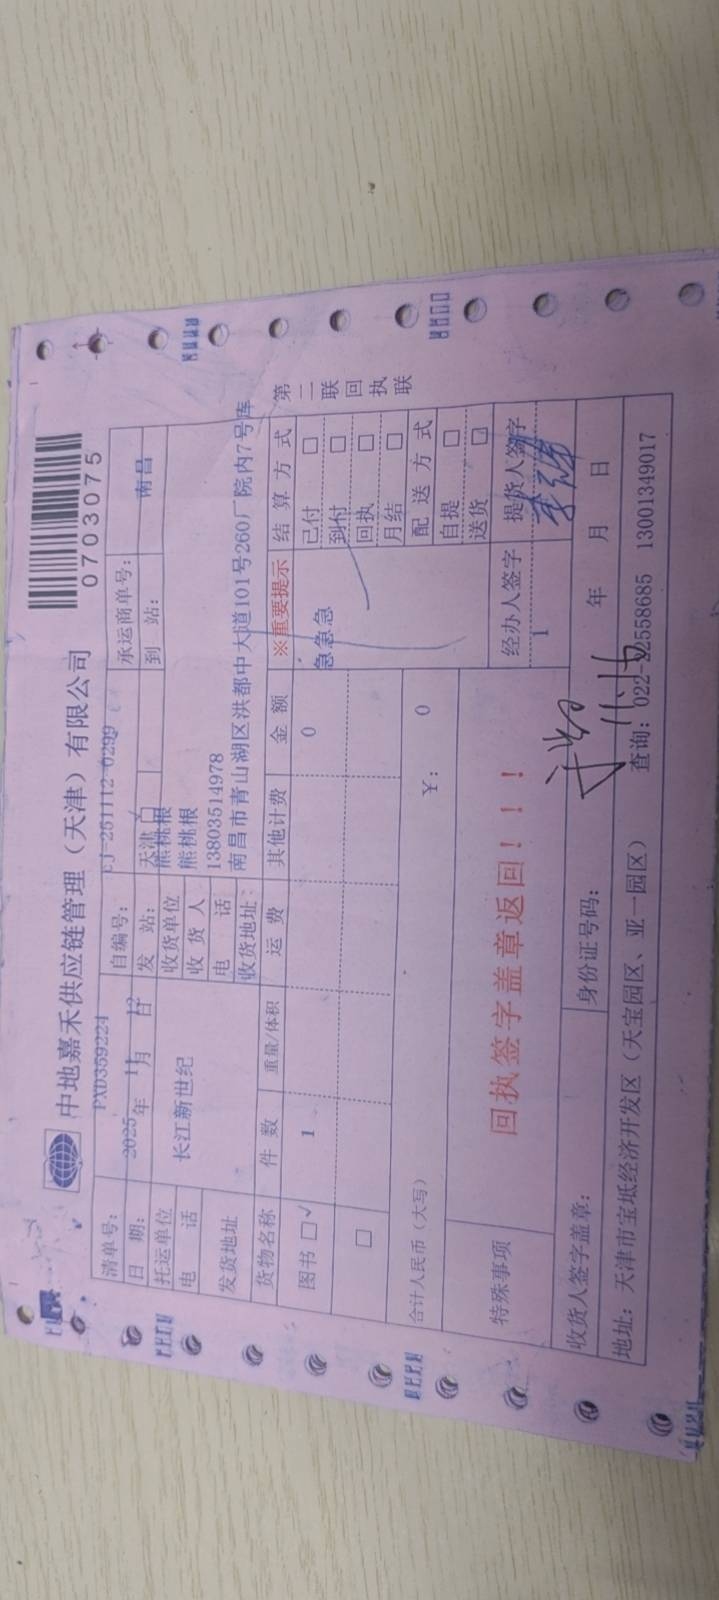 中地嘉禾供应链管理（天津）有限公司
0703075
清单号： PXD359224 自编号： CJ-251112-0299 承运商单号：
日 期： 2025 年 11 月 12 日 发 站： 天津 到 站： 南昌
托运单位 长江新世纪 收货单位 熊桃根
电 话 收 货 人 熊桃根
电 话 13803514978
发货地址 收货地址 南昌市青山湖区洪都中大道101号260厂院内7号库
货物名称 件 数 重量/体积 运 费 其他计费 金 额 ※重要提示 结 算 方 式
图书 □✓ 1 0 急急急 已付 □
到付 □
□ 回执 □
月结 □
合计人民币（大写） ￥： 0 配 送 方 式
自提 □
送货 □
特殊事项 回执签字盖章返回！！！ 经办人签字 提货人签字
1
收货人签字盖章： 身份证号码： 年 月 日
地址：天津市宝坻经济开发区（天宝园区、亚一园区） 查询：022-22558685 13001349017
第二联回执联